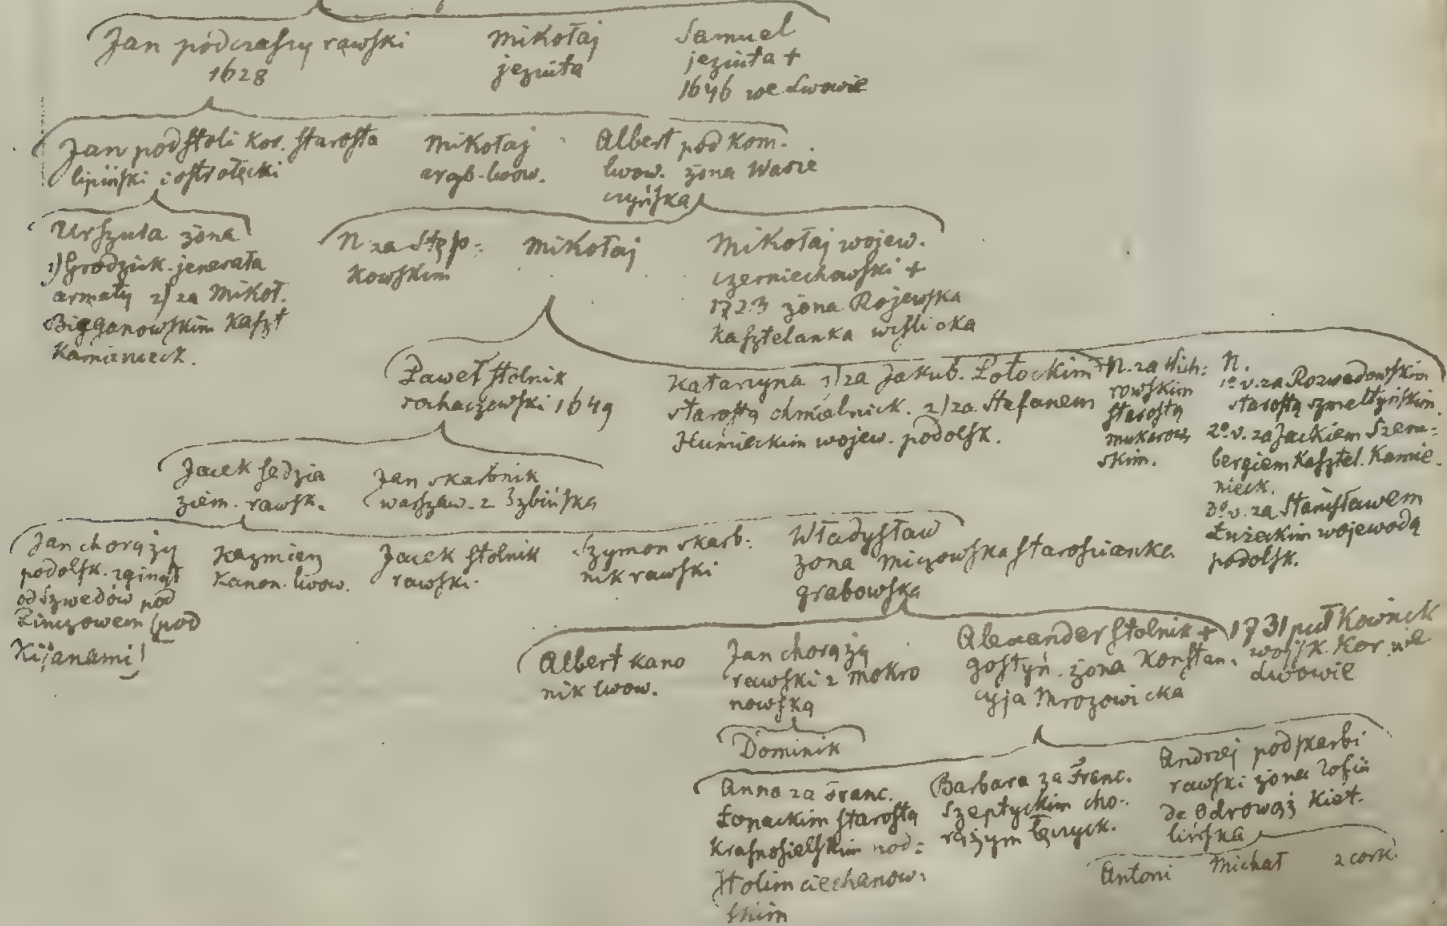 Jan podczaszy rawski
1628
Mikołaj
jezuita
Samuel
jezuita +
1646 we Lwowie
Jan podstoli kor. starosta
lipiński i ostrołęcki
Mikołaj
arcyb. lwow.
Albert podkom.
lwow. żona Wasie
czyńska
Urszula żona
1) Grodzick. jenerała
armaty 2) za Mikoł.
Bieganowskim kaszt
kamienieck.
N za Stęp=
kowskim
Mikołaj
Mikołaj wojew.
czerniechowski +
1723 żona Rojewska
kasztelanka wiślicka
Paweł stolnik
rochaczewski 1649
Katarzyna 1) za Jakub. Potockim
starostą chmielnick. 2) za Stefanem
Humieckim wojew. podolsk.
N. za Wich:
rowskim
starostą
skim.
N.
1º v. za Rozwadowskim
starostą szmeltyńskim.
2º v. za Jackiem Szem=
bergiem kasztel. kamie.
nieck.
3º v. za Stanisławem
Łużeckim wojewodą
podolsk.
Jacek sędzia
ziem. rawsk.
Jan skarbnik
warszaw. z Izbińską
Jan chorąży
podolsk. zginął
od Szwedów pod
Pinczowem (pod
Kijanami)
Kazmierz
kanon. lwow.
Jacek stolnik
rawski.
Szymon skarb=
nik rawski
Władysław
żona Miczowska starościanka
grabowska
Albert kano
nik lwow.
Jan chorąży
rawski z Mokro
nowską
Alexander stolnik + 1731 pułkownik
gostyń. żona Konstan. wojsk. kor. we
cyja Mrozowicka Lwowie
Dominik
Anna za Franc.
Łonackim starostą
krasnosielskim pod=
stolim ciechanow=
skim
Barbara za Franc.
Szeptyckim cho=
rążym łęczyck.
Andrzej podskarbi
rawski żona Zofia
de Odrowąż Kiet.
lińska
Antoni Michał 2 córk.